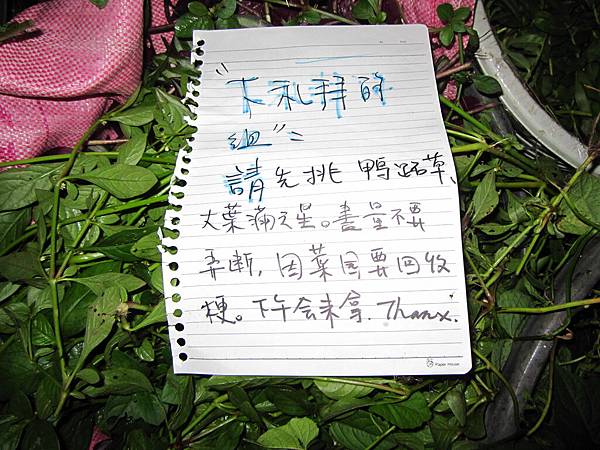 "木札拜的
組"=
請先挑 鴨跖草、
大葉滿天星。盡量不要
弄斷,因菜園要回收
梗。下午会来拿. Thanx.
Paper House